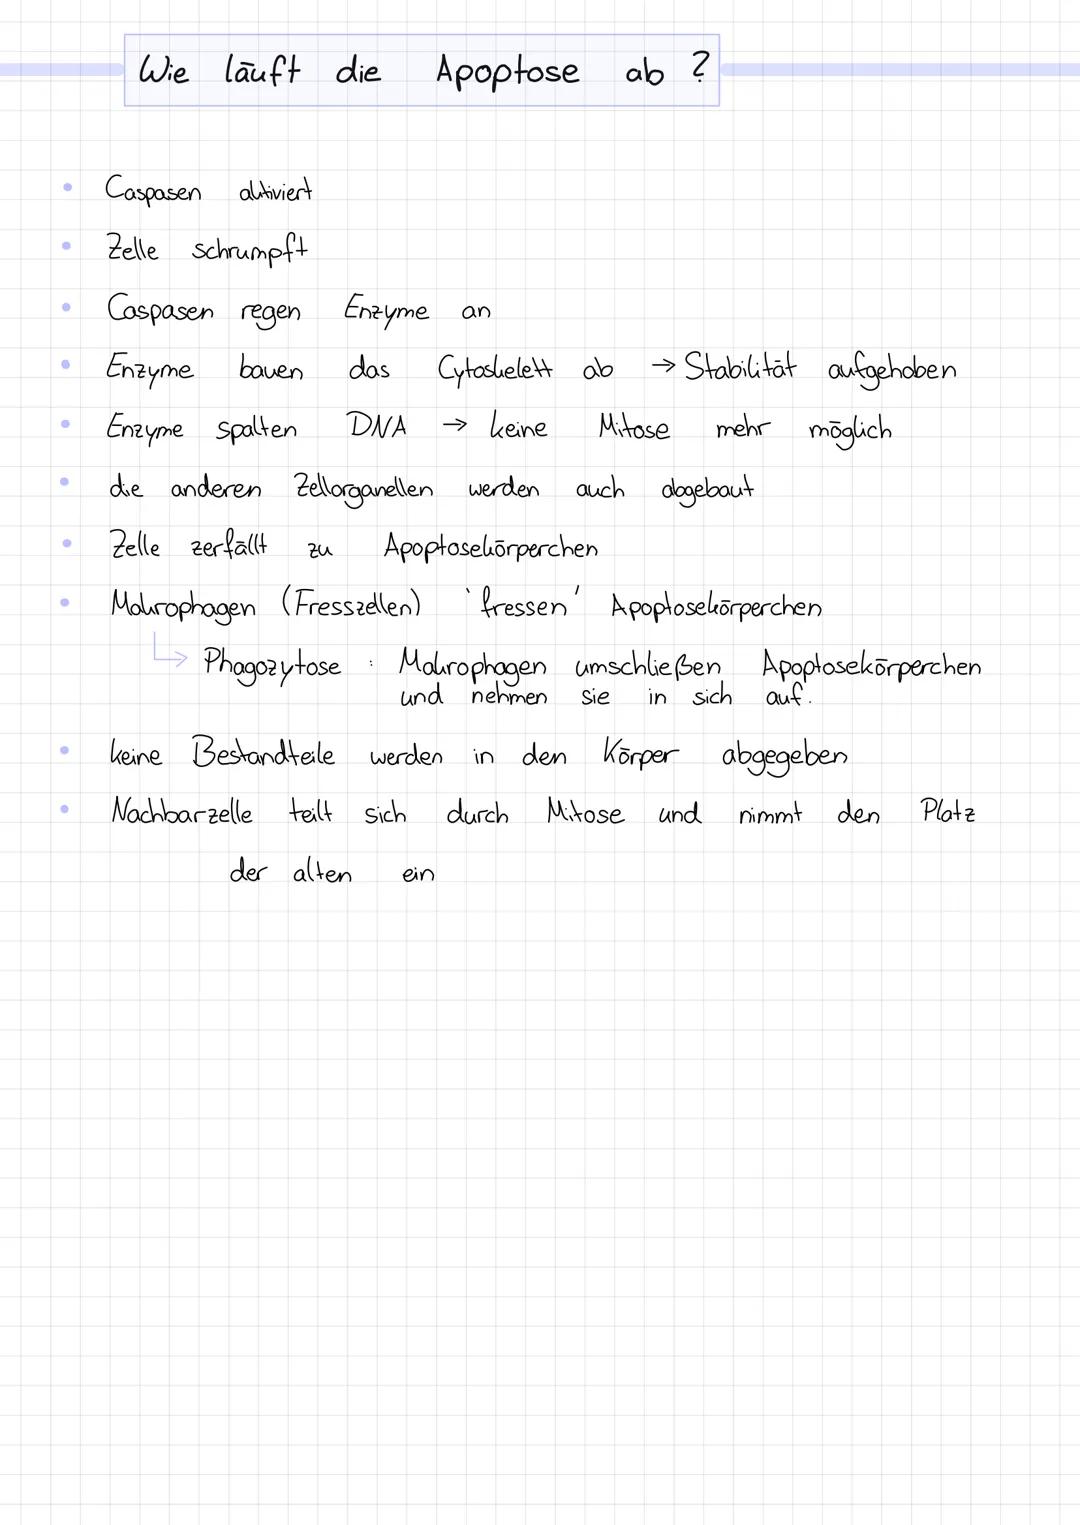 Wie läuft die Apoptose ab ?
• Caspasen aktiviert
• Zelle schrumpft
• Caspasen regen Enzyme an
• Enzyme bauen das Cytoskelett ab → Stabilität aufgehoben
• Enzyme spalten DNA → keine Mitose mehr möglich
• die anderen Zellorganellen werden auch abgebaut
• Zelle zerfällt zu Apoptosekörperchen
• Makrophagen (Fresszellen) 'fressen' Apoptosekörperchen
↳ Phagozytose : Makrophagen umschließen Apoptosekörperchen
und nehmen sie in sich auf.
• keine Bestandteile werden in den Körper abgegeben
• Nachbarzelle teilt sich durch Mitose und nimmt den Platz
der alten ein